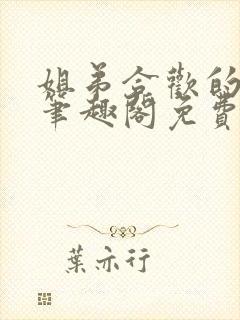 姐弟合歡的
筆趣閣免費
葉亦行